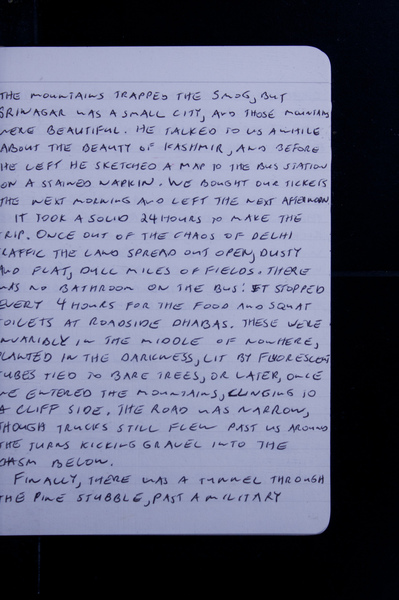 THE MOUNTAINS TRAPPED THE SMOG, BUT
SRINAGAR WAS A SMALL CITY, AND THOSE MOUNTAINS
WERE BEAUTIFUL. HE TALKED TO US AWHILE
ABOUT THE BEAUTY OF KASHMIR, AND BEFORE
HE LEFT HE SKETCHED A MAP TO THE BUS STATION
ON A STAINED NAPKIN. WE BOUGHT OUR TICKETS
THE NEXT MORNING AND LEFT THE NEXT AFTERNOON
IT TOOK A SOLID 24 HOURS TO MAKE THE
TRIP. ONCE OUT OF THE CHAOS OF DELHI
TRAFFIC THE LAND SPREAD OUT OPEN, DUSTY
AND FLAT, DULL MILES OF FIELDS. THERE
WAS NO BATHROOM ON THE BUS: IT STOPPED
EVERY 4 HOURS FOR THE FOOD AND SQUAT
TOILETS AT ROADSIDE DHABAS. THESE WERE
INVARIABLY IN THE MIDDLE OF NOWHERE,
PLANTED IN THE DARKNESS, LIT BY FLUORESCENT
TUBES TIED TO BARE TREES, OR LATER, ONCE
WE ENTERED THE MOUNTAINS, CLINGING TO
A CLIFF SIDE. THE ROAD WAS NARROW,
THOUGH TRUCKS STILL FLEW PAST US AROUND
THE TURNS KICKING GRAVEL INTO THE
CHASM BELOW.
FINALLY, THERE WAS A TUNNEL THROUGH
THE PINE STUBBLE, PAST A MILITARY